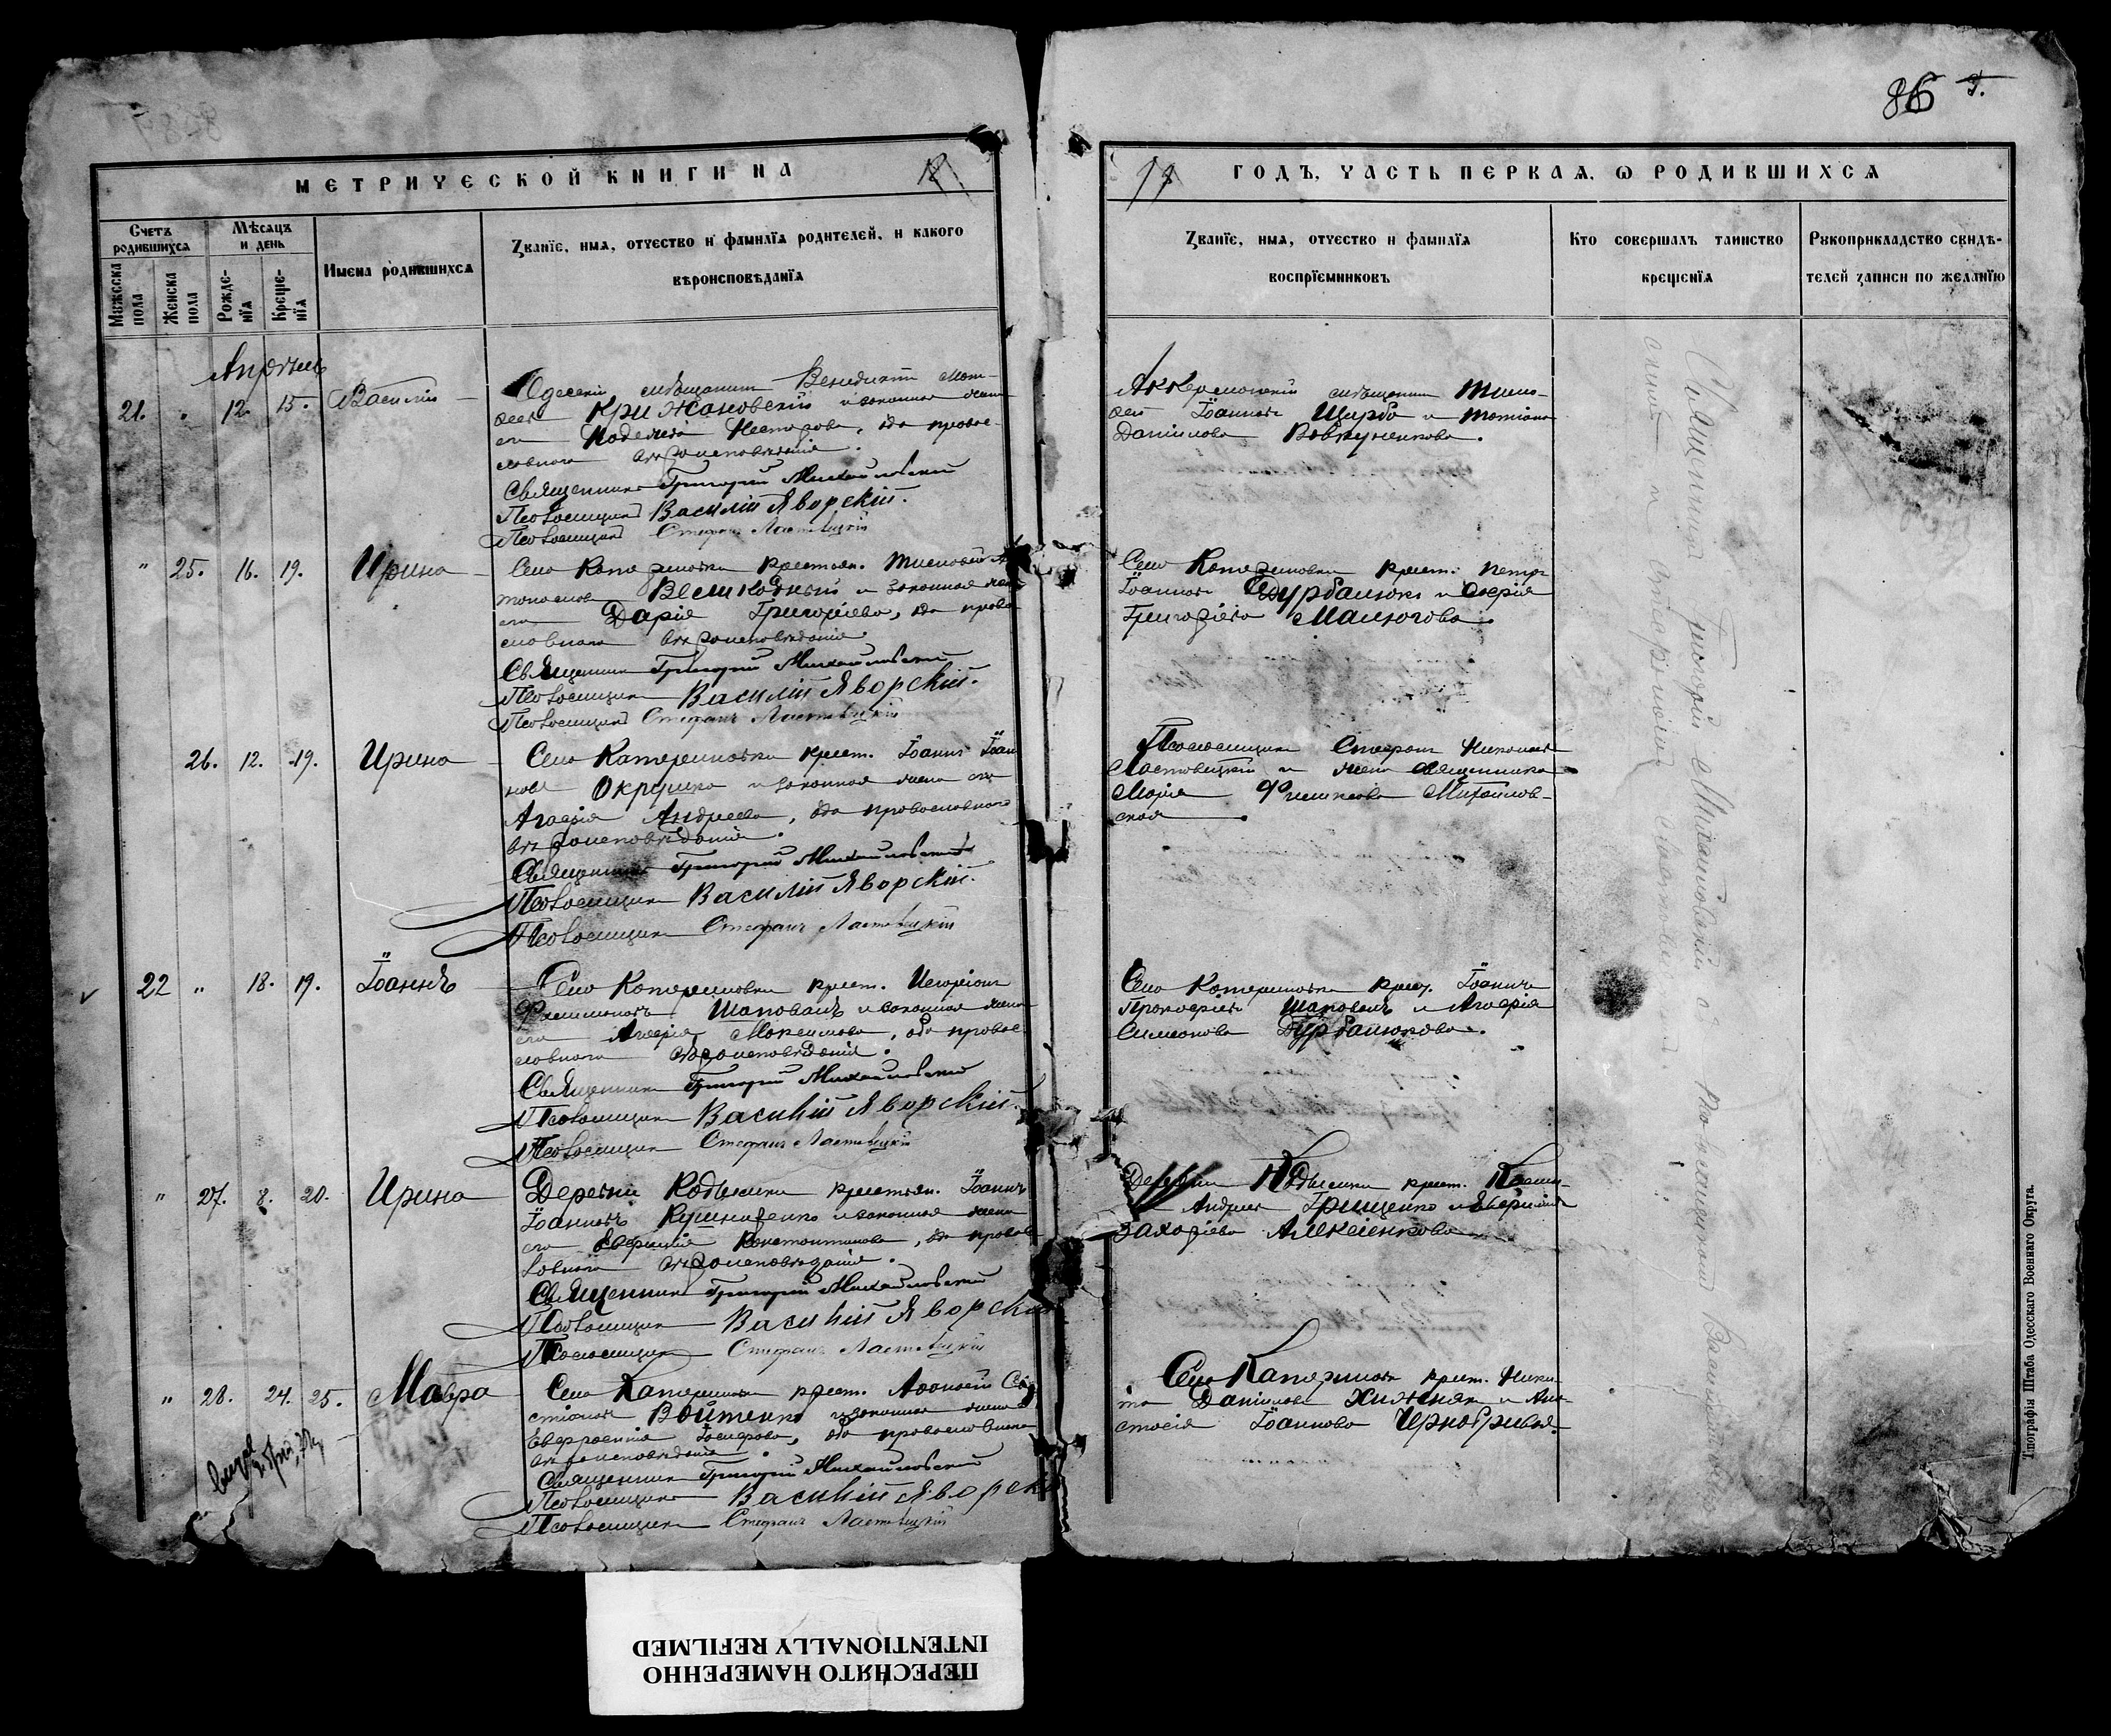 86
МЕТРИЧЕСКОЙ КНИГИ НА
ГОДЪ, ЧАСТЬ ПЕРВАЯ, Ѡ РОДИВШИХСЯ
Счетъ родившихся
Мѣсяцъ и день
Мужеска пола
Женска пола
Рожденїя
Крещенїя
Имена родившихся
Званїе, имя, отчество и фамилїя родителей, и какого
вѣроисповѣданїя
Званїе, имя, отчество и фамилїя
воспрїемниковъ
Кто совершалъ таинство
крещенїя
Рукоприкладство свидѣ-
телей записи по желанїю
Апрѣль
21. " 12. 15. Василій
Одескій мѣщанинъ Венидиктъ Мат-
ѳеевъ Крижановскій и законная жена
его Надежда Несторова, оба право-
славнаго вѣроисповѣданія.
Священникъ Григорій Михайловскій
Псаломщикъ Василій Яворскій.
Псаломщикъ Стефанъ Ластовецкій
Аккерманскій мѣщанинъ Тимо-
ѳей Іоанновъ Щерба и Татіана
Даніилова
" 25. 16. 19. Ирина
Села Катериновки крестьян.
Великодный и законная жена
его Дарія Григоріева, оба право-
славнаго вѣроисповѣданія
Священникъ Григорій Михайловскій
Псаломщикъ Василій Яворскій.
Псаломщикъ Стефанъ Ластовецкій
Села Катериновки крест. Петръ
Іоанновъ Дурбалюкъ и Марія
Григоріева Малюгова.
26. 12. 19. Ирина
Села Катериновки крест. Іоаннъ Іоан-
новъ Окрушко и законная жена его
Агафія Андреева, оба православнаго
вѣроисповѣданія.
Священникъ Григорій Михайловскій
Псаломщикъ Василій Яворскій.
Псаломщикъ Стефанъ Ластовецкій
Псаломщикъ Стефанъ Николаевъ
Ластовецкій и жена священника
Марія Михайлов-
ская
22 " 18. 19. Іоаннъ
Села Катериновки крест.
Филимоновъ Шаповалъ и законная жена
его Агафія Максимова, оба право-
славнаго вѣроисповѣданія.
Священникъ Григорій Михайловскій
Псаломщикъ Василій Яворскій.
Псаломщикъ Стефанъ Ластовецкій
Села Катериновки крест. Іоаннъ
Прокофіевъ Шаповалъ и Агафія
Симеонова Дурбалюкова.
" 27. 8. 20. Ирина
Деревни Кодымки крестьян. Іоаннъ
Іоанновъ Кушниренко и законная жена
его Евфимія Константинова, оба правос-
лавнаго вѣроисповѣданія.
Священникъ Григорій Михайловскій
Псаломщикъ Василій Яворскій
Псаломщикъ Стефанъ Ластовецкій
Деревни Кодымки крест.
Андреевъ Грищенко и Евфимія
Захаріева Алексіенкова
" 28. 24. 25. Мавра
Села Катериновки крест. Аѳанасій Сева-
стіановъ Войтенко и законная жена его
Евфросинія Іосифова, оба православнаго
вѣроисповѣданія.
Священникъ Григорій Михайловскій
Псаломщикъ Василій Яворскій
Псаломщикъ Стефанъ Ластовецкій
Села Катериновки крест. Ники-
та Даніиловъ Хижнякъ и Ана-
стасія Іоаннова Чернобривая.
Священникъ Григорій Михайловскій съ Псаломщиками Василіемъ Яворскимъ и Стефаномъ
Типографія Штаба Одесскаго Военнаго Округа.
ПЕРЕСНЯТО НАМЕРЕННО
INTENTIONALLY REFILMED